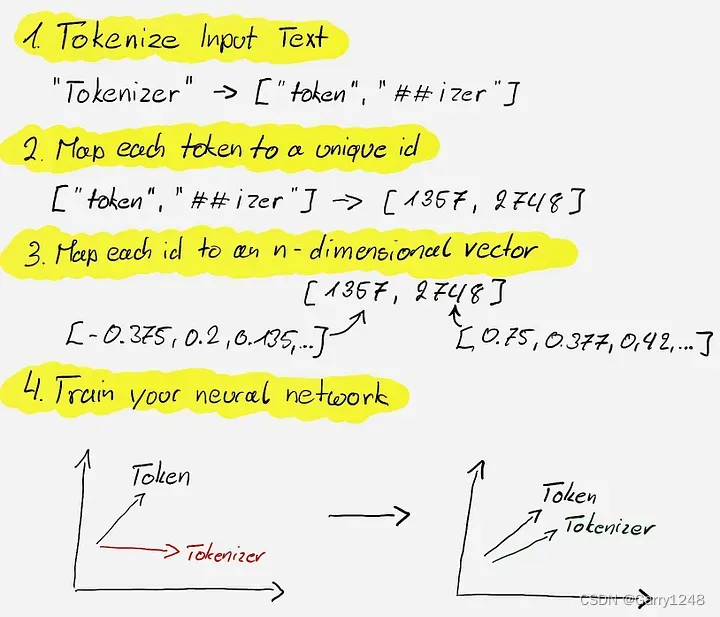 1. Tokenize Input Text
"Tokenizer" -> ["token", "##izer"]
2. Map each token to a unique id
["token", "##izer"] -> [1357, 2748]
3. Map each id to an n-dimensional vector
[1357, 2748]
[-0.375, 0.2, 0.135,...] [0.75, 0.377, 0,42,...]
4. Train your neural network
Token
Tokenizer
Token
Tokenizer
CSDN @Garry1248